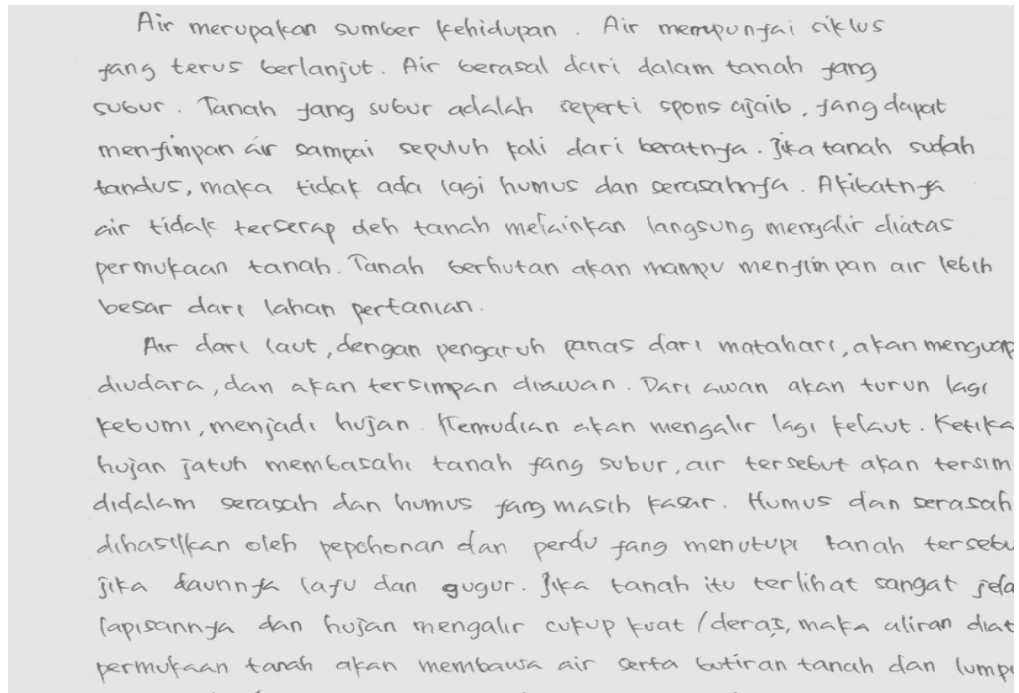 Air merupakan sumber kehidupan. Air mempunyai siklus
yang terus berlanjut. Air berasal dari dalam tanah yang
subur. Tanah yang subur adalah seperti spons ajaib, yang dapat
menyimpan air sampai sepuluh kali dari beratnya. Jika tanah sudah
tandus, maka tidak ada lagi humus dan serasahnya. Akibatnya
air tidak terserap oleh tanah melainkan langsung mengalir diatas
permukaan tanah. Tanah berhutan akan mampu menyimpan air lebih
besar dari lahan pertanian.
Air dari laut, dengan pengaruh panas dari matahari, akan menguap
diudara, dan akan tersimpan diawan. Dari awan akan turun lagi
kebumi, menjadi hujan. Kemudian akan mengalir lagi kelaut. Ketika
hujan jatuh membasahi tanah yang subur, air tersebut akan tersim
didalam serasah dan humus yang masih kasar. Humus dan serasah
dihasilkan oleh pepohonan dan perdu yang menutupi tanah tersebu
jika daunnya layu dan gugur. Jika tanah itu terlihat sangat jela
lapisannya dan hujan mengalir cukup kuat/deras, maka aliran diat
permukaan tanah akan membawa air serta butiran tanah dan lumpu